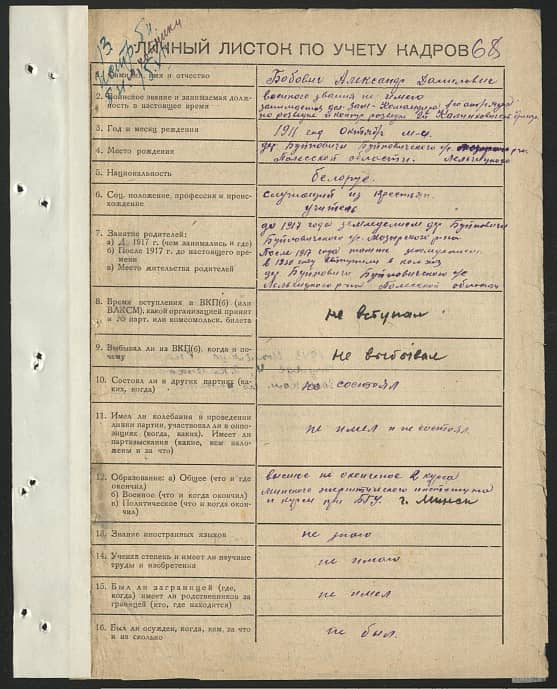 13
ЛИЧНЫЙ ЛИСТОК ПО УЧЕТУ КАДРОВ 68
1. Фамилия, имя и отчество
Бобович Александр Данилович
2. Воинское звание и занимаемая долж-
ность в настоящее время
военного звания не имею
занимаемая дол. Зам. Командира
по разведке и контр разведки
3. Год и месяц рождения
1911 год Октябрь м-ц
4. Место рождения
дер Буйновичи Буйновичского с/с
Полесской области. Лельчицкого
5. Национальность
белорус.
6. Соц. положение, профессия и проис-
хождение
служащий из крестьян.
учитель
7. Занятие родителей:
а) До 1917 г. (чем занимались и где)
б) После 1917 г. до настоящего вре-
мени
в) Место жительства родителей
до 1917 года земледелием дер Буйновичи
Буйновичского с/с Мозырского р-на
После 1917 года тоже
в 1930 году вступили в колхоз
дер Буйновичи Буйновичского с/с
Лельчицкого р-на Полесской области
8. Время вступления в ВКП(б) (или
ВЛКСМ), какой организацией принят
и № парт. или комсомольск. билета
не вступал
9. Выбывал ли из ВКП(б), когда и по-
чему
не выбывал
10. Состоял ли в других партиях (ка-
ких, когда)
не состоял
11. Имел ли колебания в проведении
линии партии, участвовал ли в оппо-
зициях (когда, каких). Имеет ли
партвзыскания (какие, кем нало-
жены и за что)
не имел и не состоял
12. Образование: а) Общее (что и где
окончил)
б) Военное (что и когда окончил)
в) Политическое (что и когда окон-
чил)
высшее не оконченое 2 курса
Минского энергитического института
и курсы при БГУ г. Минск
13. Знание иностранных языков
не знаю
14. Ученая степень и имеет ли научные
труды и изобретения
не имею
15. Был ли заграницей (где,
когда) имеет ли родственников за
границей (кто, где находится)
не имел
16. Был ли осужден, когда, кем, за что
и на сколько
не был.